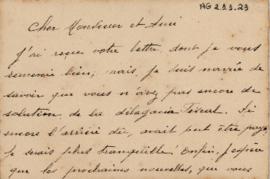 AG 2.9.9.23
Cher Monsieur et Ami
J'ai reçu votre lettre, dont je vous
remercie bien; mais, je suis navrée de
savoir que vous n'avez pas encore de
solution, de la délégacia Fiscal. Si
encore l'arriéré dû, avait peut être payé
Je serais plus tranquille! Enfin, j'espère
que les prochaines nouvelles, que vous